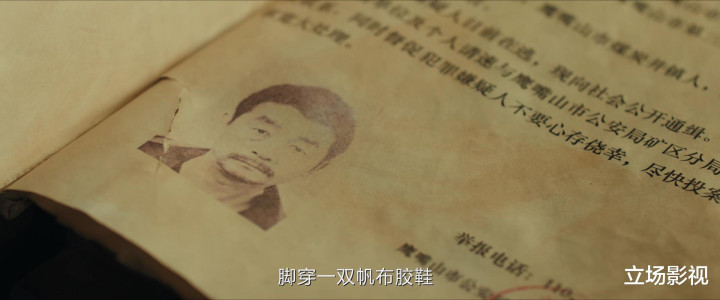 鹰嘴山市煤炭井镇人，
疑人目前在逃，现向社会公开通缉。
单位及个人请速与鹰嘴山市公安局矿区分局
同时督促犯罪嫌疑人不要心存侥幸，尽快投案
宽大处理。
举报电话：110
鹰嘴山市公安
脚穿一双帆布胶鞋
立场影视